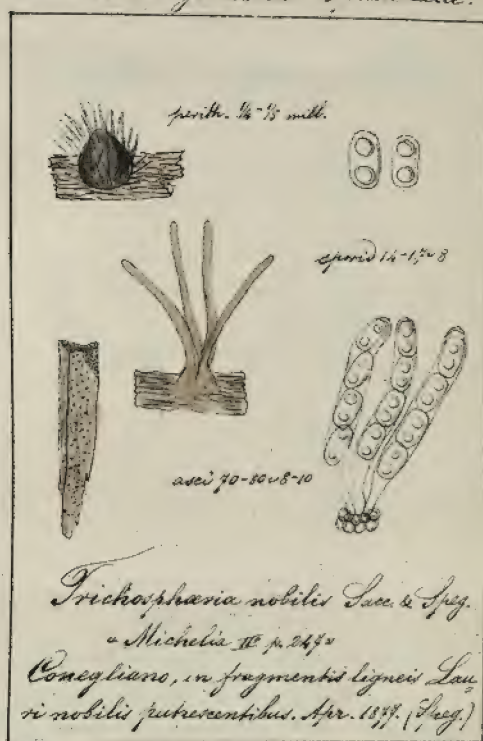 perith. ¼-⅕ mill.
sporid 14-17 ≈ 8
asci 70-80 ≈ 8-10
Trichosphæria nobilis Sacc. & Speg.
« Michelia II° p. 247 »
Conegliano, in fragmentis ligneis Lau-
ri nobilis putrescentibus. Apr. 1877. (Speg.)